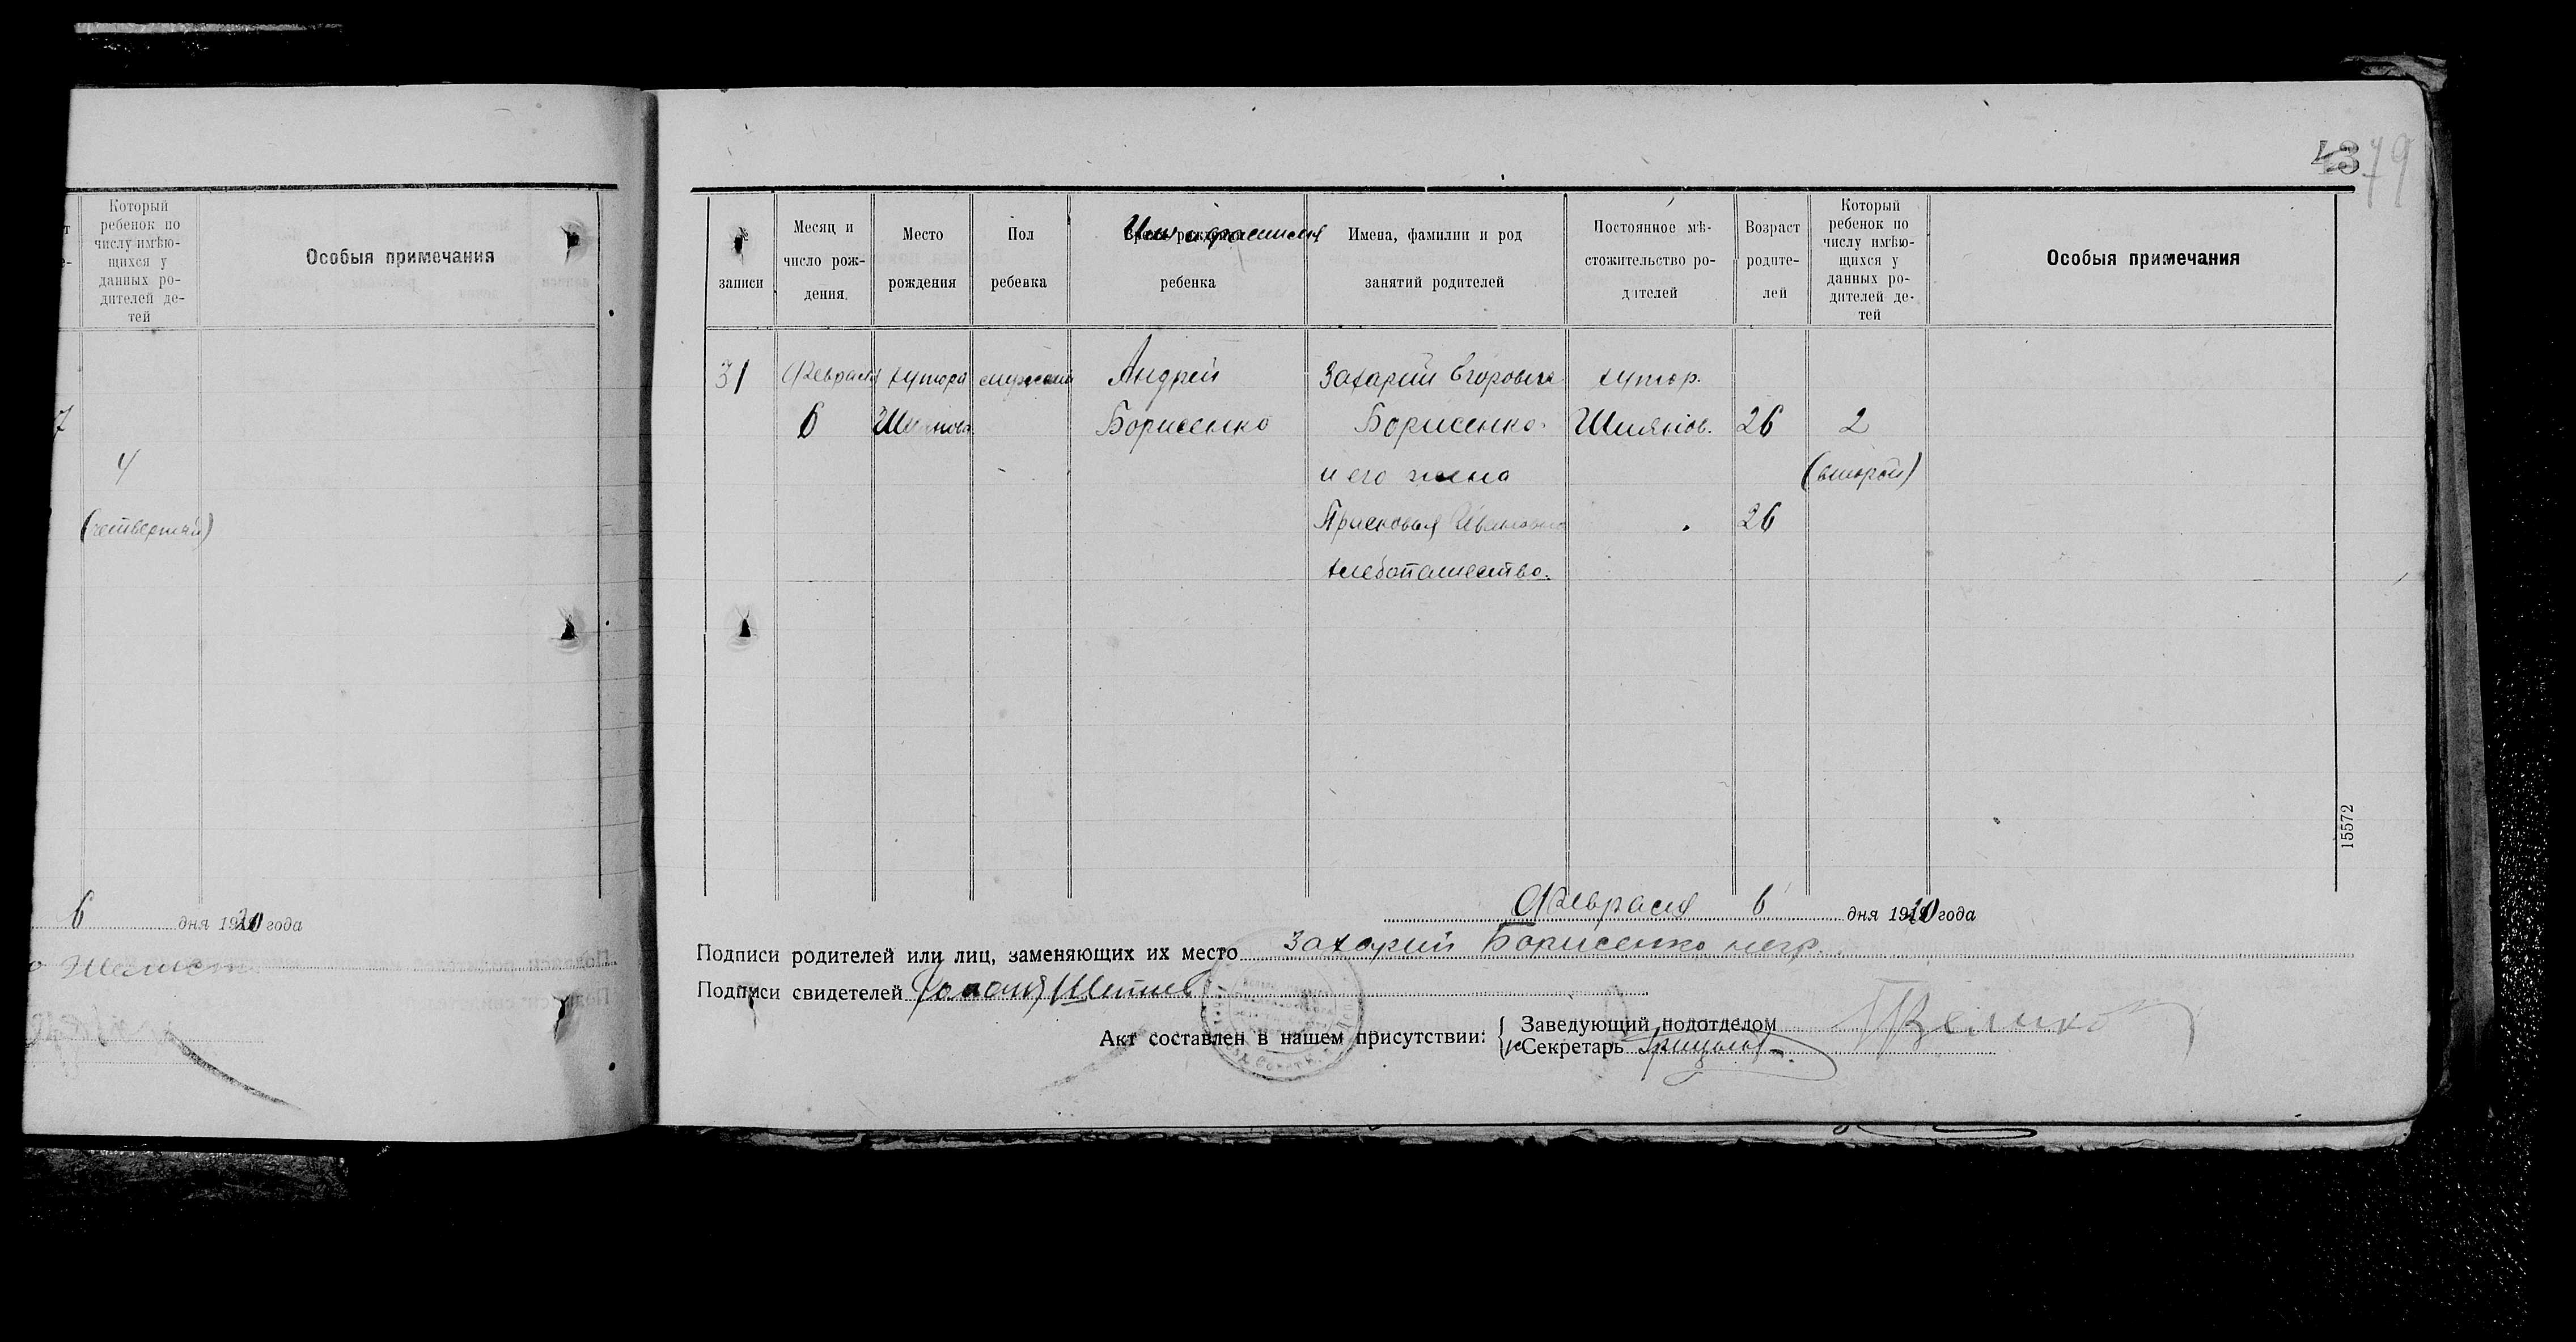 Который
ребенок по
числу имѣю-
щихся у
данных ро-
дителей де-
тей
Особыя примечания
7
4
(четвертый)
6 дня 1920 года
43 79
записи
Месяц и
число рож-
дения.
Место
рождения
Пол
ребенка
Имя и фамилия
ребенка
Имена, фамилии и род
занятий родителей
Постоянное мѣ-
стожительство ро-
дителей
Возраст
родите-
лей
Который
ребенок по
числу имѣю-
щихся у
данных ро-
дителей де-
тей
Особыя примечания
31
Февраля
6
хутора
Шиянова
мужской
Андрей
Борисенко
Захарий Егоровича
Борисенко
и его жена
Прасковья Ивановна
хлебопашество.
хутор.
Шиянов.
26
26
2
(второй)
15572
Февраля 6 дня 1920 года
Подписи родителей или лиц, заменяющих их место Захарий Борисенко негр.
Подписи свидетелей
Акт составлен в нашем присутствии:
Заведующий подотделом
Секретарь